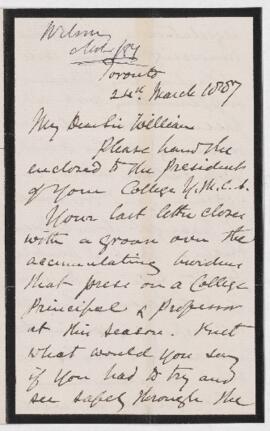 Wilson
Toronto
24th March 1887
My Dear Sir William
Please hand the
enclosed to the President
of your College Y.M.C.A.
Your last letter closes
with a groan over the
accumulating burdens
that press on a College
Principal & Professor
at this season. But
what would you say
if you had to try and
see safely through the